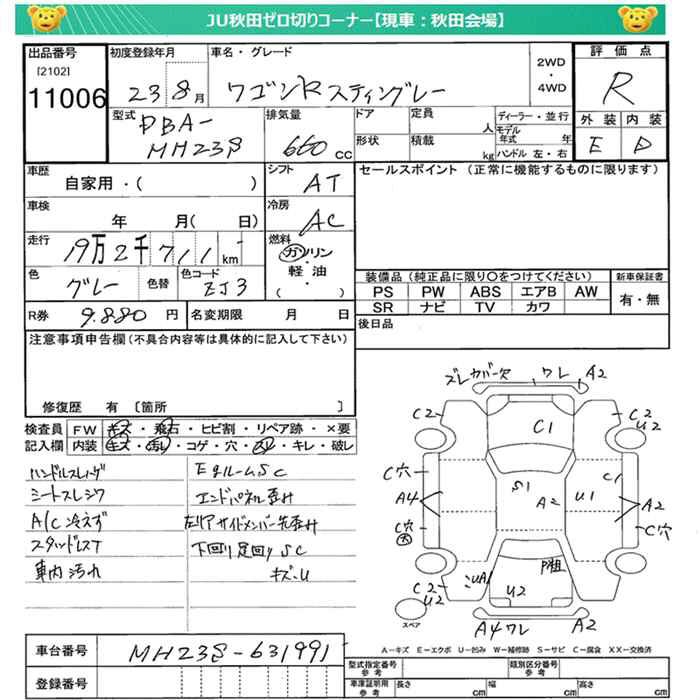 JU秋田ゼロ切りコーナー【現車：秋田会場】
出品番号
[2102]
11006
初度登録年月
23 8月
車名・グレード
ワゴンRスティングレー
2WD
・
4WD
評価点
R
外装 内装
E D
型式
DBA-
MH23S
排気量
660cc
ドア
形状
定員
人
積載
kg
ディーラー・並行
モデル年式 年
ハンドル 左・右
車歴
自家用・( )
シフト
AT
セールスポイント (正常に機能するものに限ります)
車検
年 月( 日)
冷房
AC
走行
19万2千711km
燃料
ガソリン
・
軽油
( )
色
グレー
色替
色コード
ZJ3
装備品 (純正品に限り〇をつけてください)
新車保証書
PS PW ABS エアB AW
SR ナビ TV カワ
有・無
R券 9.880円
名変期限 月 日
後日品
注意事項申告欄(不具合内容等は具体的に記入して下さい)
修復歴 有 〔箇所 〕
検査員 記入欄
FW キズ・飛石・ヒビ割・リペア跡・×要
内装 キズ・汚れ・コゲ・穴・スレ・キレ・破レ
ハンドルスレ
シートスレシワ
A/C冷えず
スタッドレスT
車内汚れ
EgルームSC
エンドパネル歪み
左リアサイドメンバー先歪み
下回り足回りSC
キズ・U
ズレ カバー欠 ワレ A2
C2
C1
C2
U2
C穴
A4
S1
A2
U1
C1
A2
C穴
C穴
大
C2
U2
UA1
U2
P粗
C2
U2
スペア
A4ワレ A2
A－キズ E－エクボ U－凹み W－補修跡 S－サビ C－腐食 XX－交換済
車台番号
MH23S-631991
登録番号
型式指定番号
参考
類別区分番号
参考
車庫証明用
参考
長さ cm
幅 cm
高さ cm